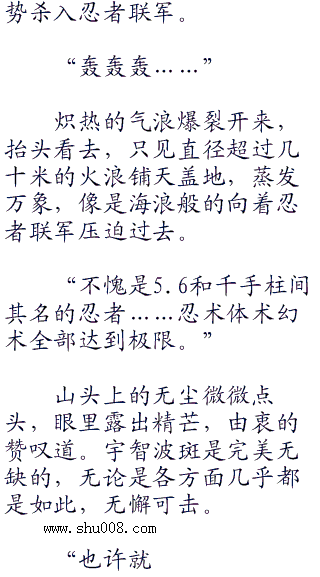 势杀入忍者联军。
“轰轰轰……”
炽热的气浪爆裂开来，
抬头看去，只见直径超过几
十米的火浪铺天盖地，蒸发
万象，像是海浪般的向着忍
者联军压迫过去。
“不愧是5.6和千手柱间
其名的忍者……忍术体术幻
术全部达到极限。”
山头上的无尘微微点
头，眼里露出精芒，由衷的
赞叹道。宇智波斑是完美无
缺的，无论是各方面几乎都
是如此，无懈可击。
www.shu008.com
“也许就